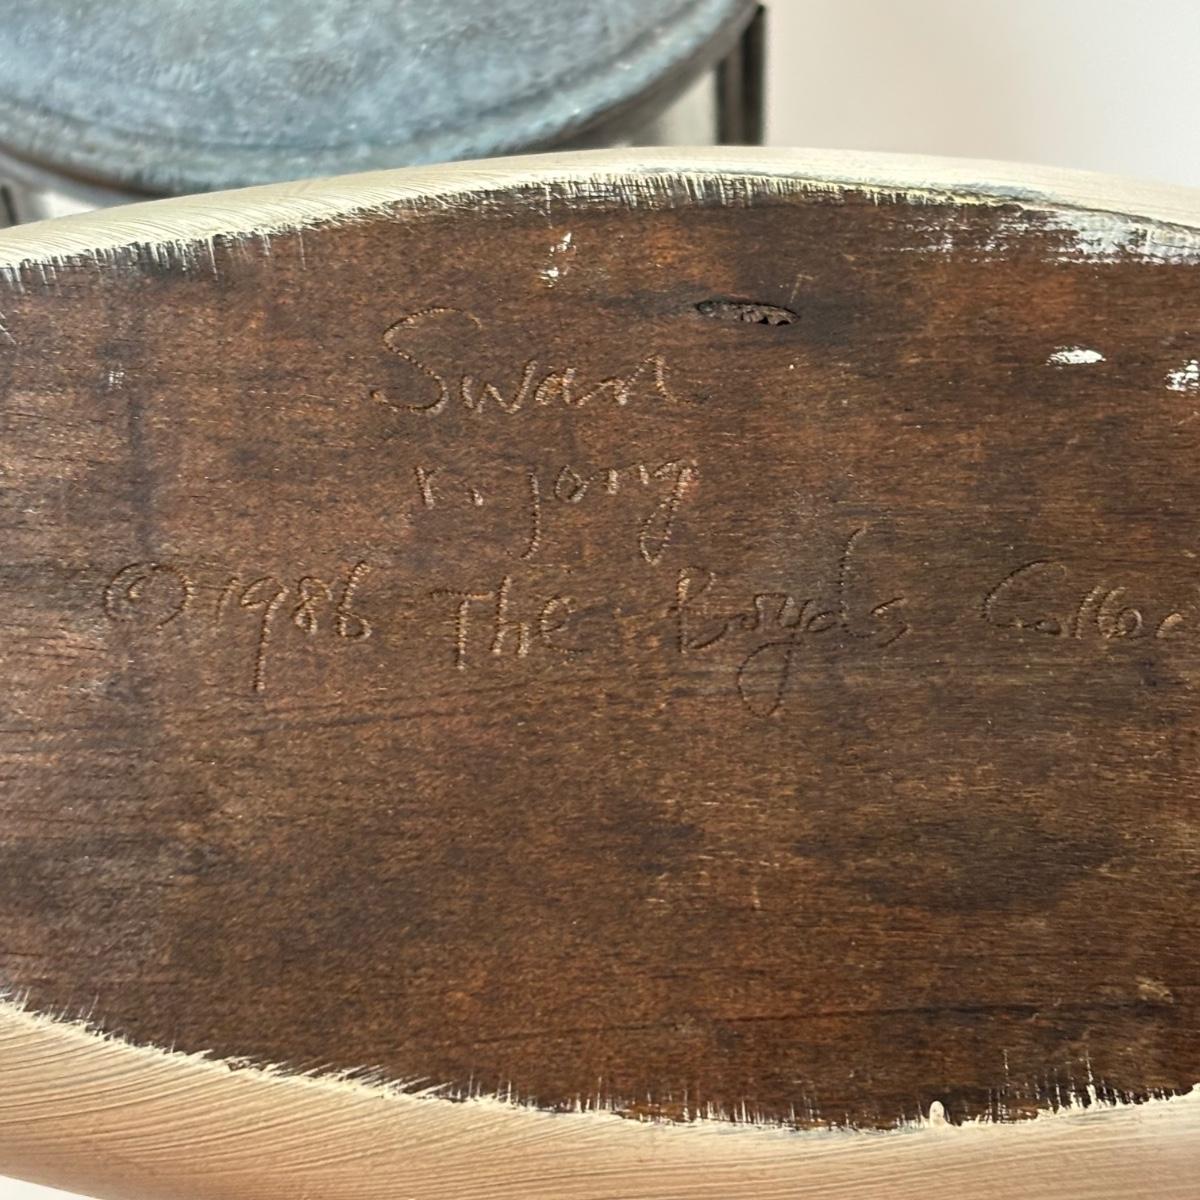 Swan
r. jong
© 1986 The Boyds Collec